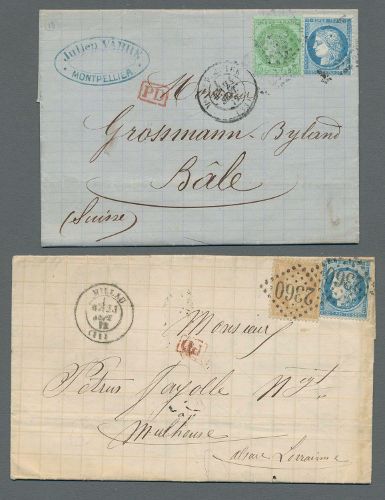 Julien VABRE
MONTPELLIER
PD
Monsieur
Grossmann-Byland
Bâle
(Suisse)
MILLAU
2360
2360
PD
Monsieur
Pétrus Fayolle Nt.
à
Mulhouse
Alsace Lorraine